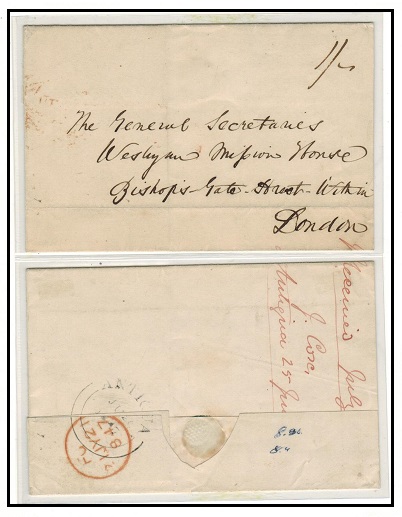 1/-
The General Secretaries
Weslyan Mission House
Bishop's-Gate-Street-Within
London
Received July
J. Cox,
Antigua 25 Ju
ANTIGUA